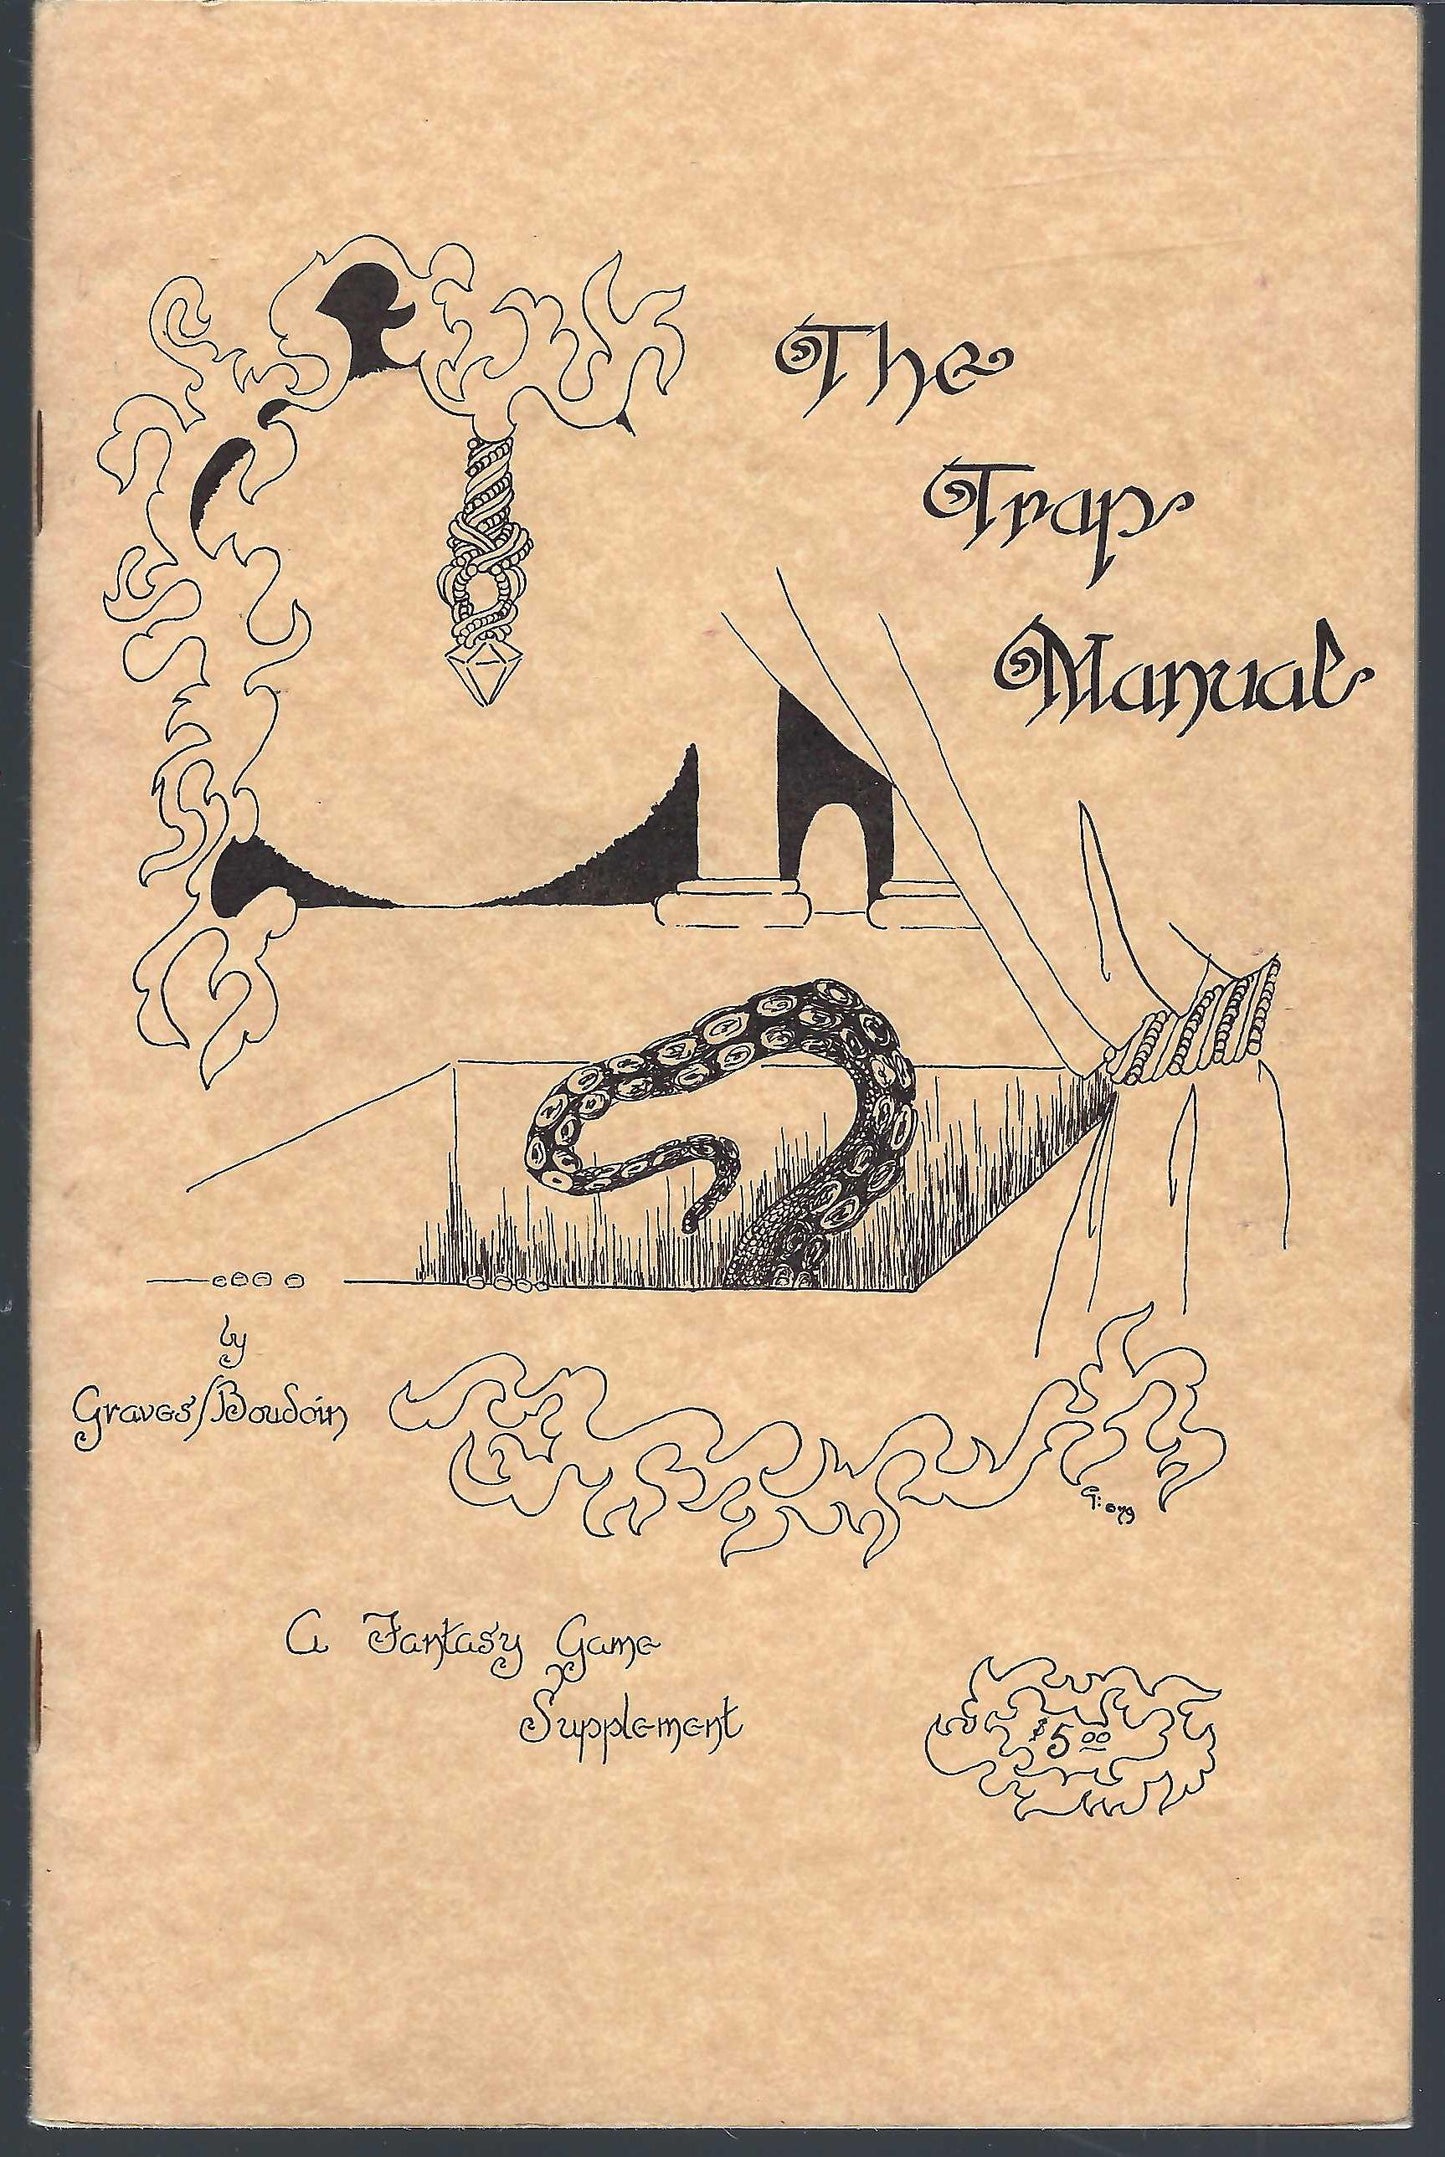 The
Trap
Manual
by
Graves/Boudoin
A Fantasy Game
Supplement
$5.00